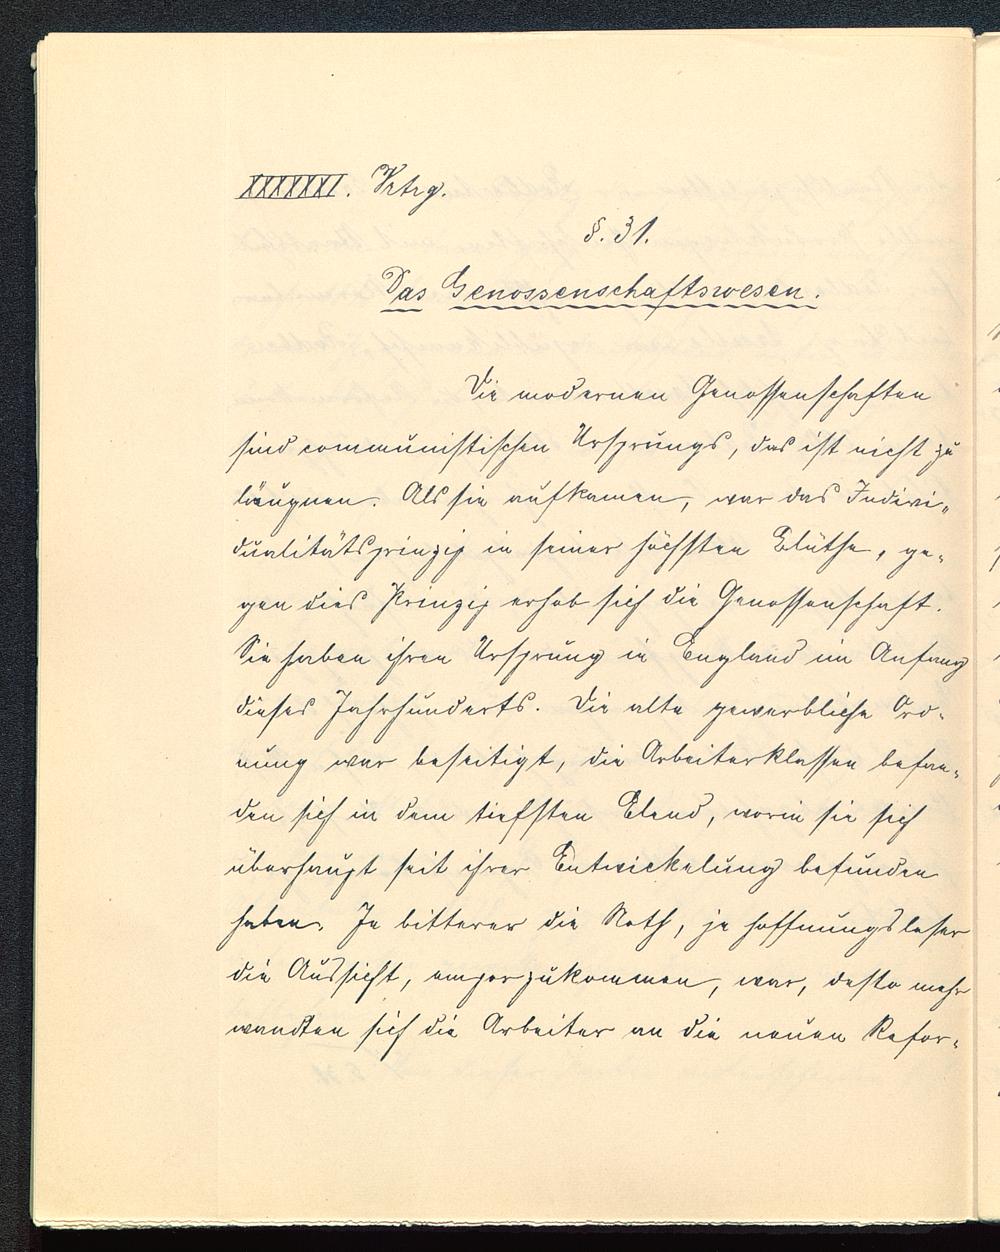 XXXXXXI. Vrtrg.
§. 31.
Das Genossenschaftswesen.
Die modernen Genossenschaften
sind communistischen Ursprungs, das ist nicht zu
läugnen. Als sie aufkamen, war das Indivi-
dualitätsprinzip in seiner höchsten Blüthe, ge-
gen dies Prinzip erhob sich die Genossenschaft.
Sie haben ihren Ursprung in England im Anfang
dieses Jahrhunderts. Die alte gewerbliche Ord-
nung war beseitigt, die Arbeiterklassen befan-
den sich in dem tiefsten Elend, worin sie sich
überhaupt seit ihrer Entwickelung befunden
haben. Je bitterer die Noth, je hoffnungsloser
die Aussicht, emporzukommen, war, desto mehr
wandten sich die Arbeiter an die neuen Refor-